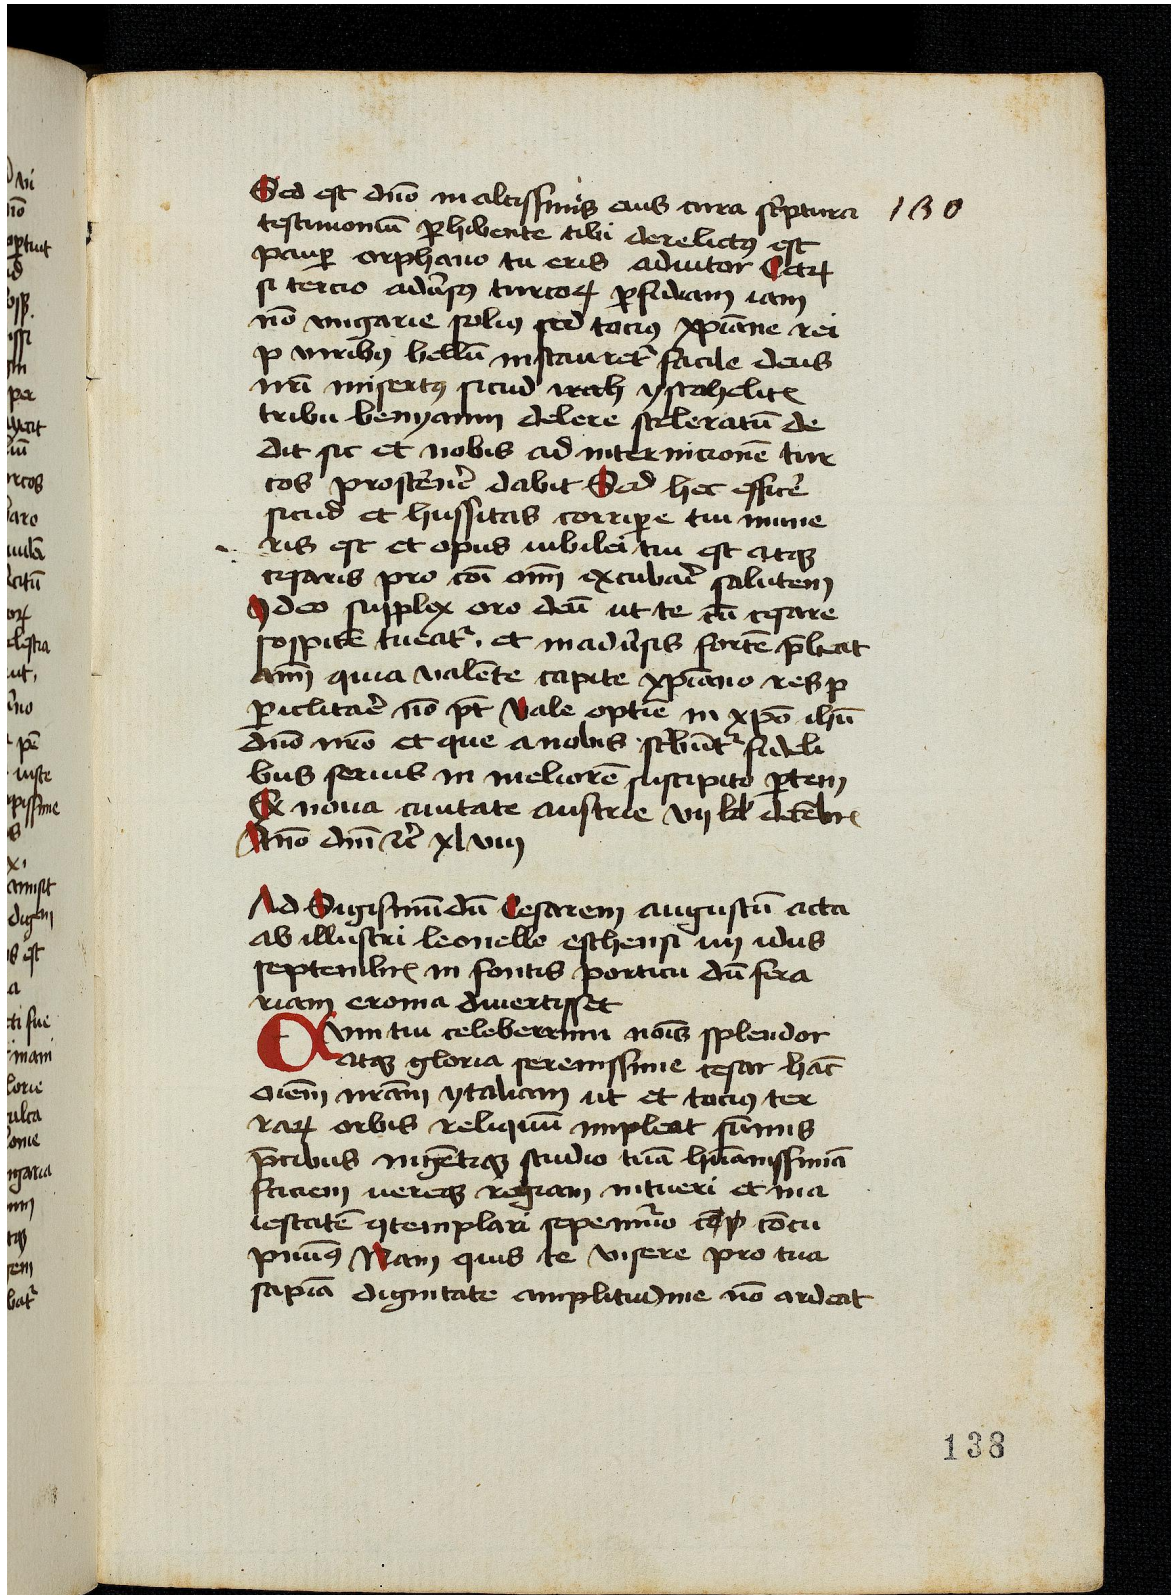 Sed est dn̄o in altissimis eius cura sc̄ptura 130
testimoniū ꝑhibente tibi derelictꝰ est
pauꝑ orphano tu eris adiutor Cetꝝ
si tercio adūsꝰ turcoꝝ ꝑfidiam iam
nō vngarie soliꝰ sed tociꝰ xp̄iane rei
p viribꝰ bellū instauret᷑ facile deus
nr̄i misertꝰ sicud
tribu benyamin delere sceleratū de
dit sic et nobis ad internicionē tur
cos prostern̄e᷑ dabit Sed hec efficē
sicud et hussitas corriꝑe tui mune
ris est et opus iubilei tui est atqꝫ
cesaris pro cōi om̄i excubar̄ salutem
ydeo supplex oro deū ut te cū cesare
sospitē tueat᷑. et in adūsis fortē p̄beat
am̄i quia valēte capite xp̄iano res p
ꝑiclitar̄ nō pt̄ Vale optīe in xp̄o ihū
dn̄o nr̄o et que a nobis sc̄bunt᷑ fideli
bus serius in meliorē suscipito ꝑtem
Ex noua ciuitate austrie vij kl̄ decēbr̄
Anō dn̄i ⁊c̄ xlviij
Ad Sigismūdū Cesarem augustū acta
ab illustri leonello esthensi iiij idus
septembr̄ in fontis porticu dū fera
riam e roma diuertisset
Qvm tui celeberrimi noīs splendor
atqꝫ gloria serenissime cesar hāc
oiem̄ nr̄am ytaliam ut et tociꝰ ter
raꝝ orbis reliquū impleat sūmis
p̄cibus ingētiqꝫ studio tuā hūanissimā
faciem uereqꝫ regiam intueri et ma
iestatē ꝯtemplari sepenūo cōcu
piuiꝰ Nam quis te visere pro tua
sapīa dignitate amplitudine nō ardeat
138